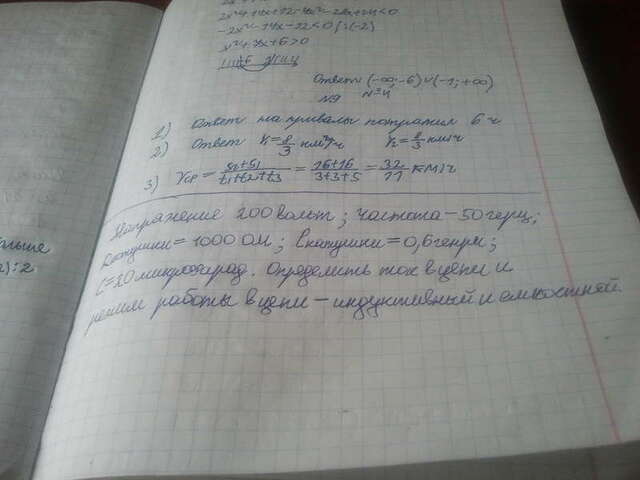 -2x²-14x-12<0 |:(-2)
x²+7x+6>0
Ответ (-∞;-6)∪(-1;+∞)
№9
1) Ответ на привалы потратил 6 ч
2) Ответ V₁=8/3 км/ч V₂=8/3 км/ч
3) Vср = S₁+S₁/t₁+t₂+t₃ = 16+16/3+3+5 = 32/11 км/ч
Напряжение 200 вольт; частота - 50 герц;
катушки = 1000 Ом; Lкатушки = 0,6 генри;
C=10 микрофарад. Определить ток в цепи и
режим работы в цепи - индуктивный и емкостной.
):2